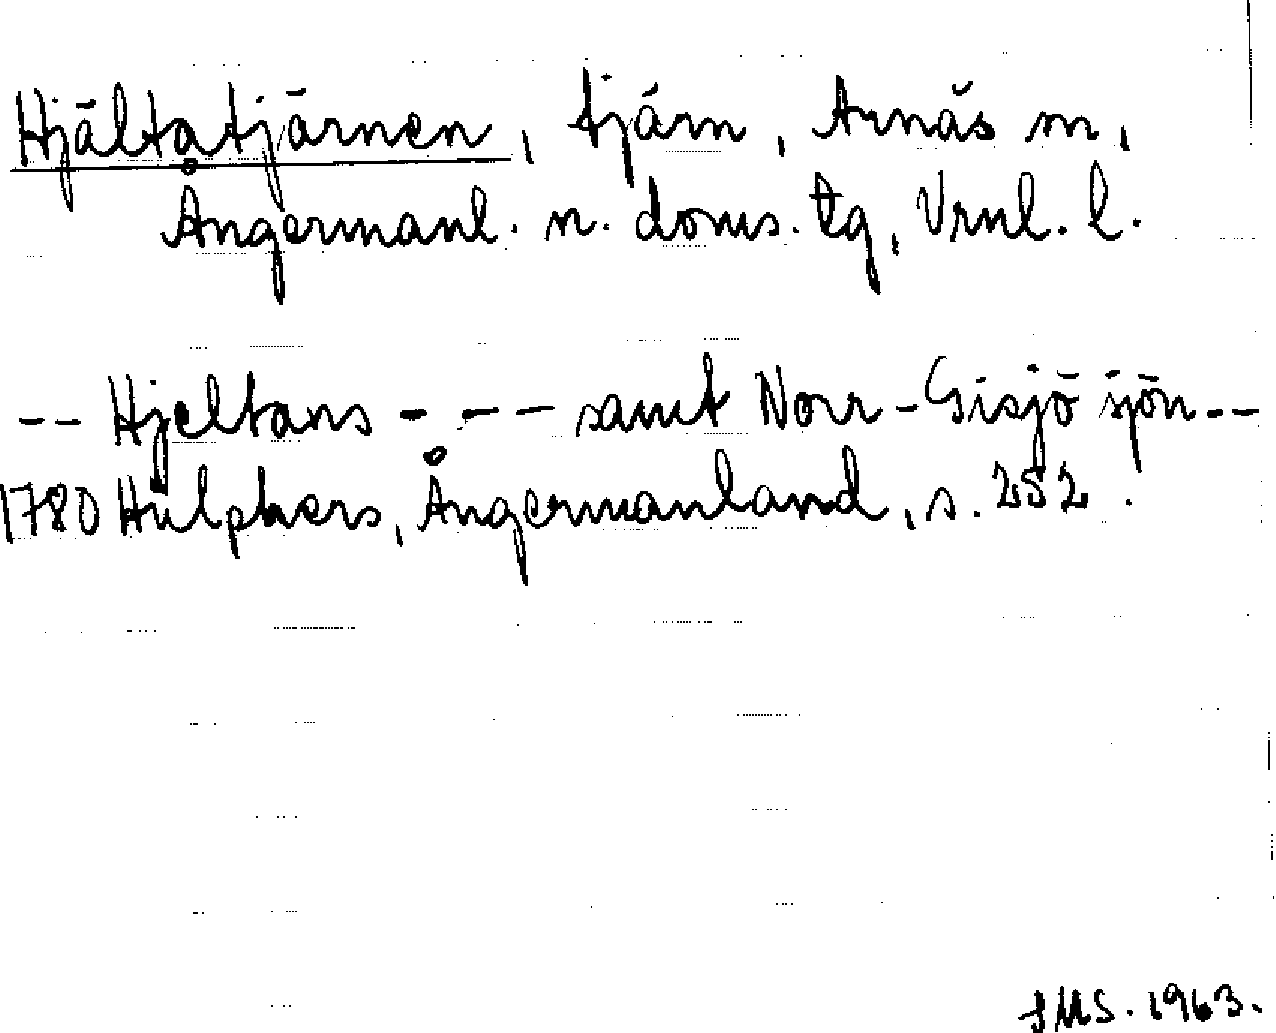 Hjältatjärnen, tjärn, Arnäs sn,
Ångermanl. n. doms. tg, Vrnl. l.
-- Hjeltans - - -- samt Norr-Gisjö sjön --
1780 Hülphers, Ångermanland, s. 252.
SMS. 1963.